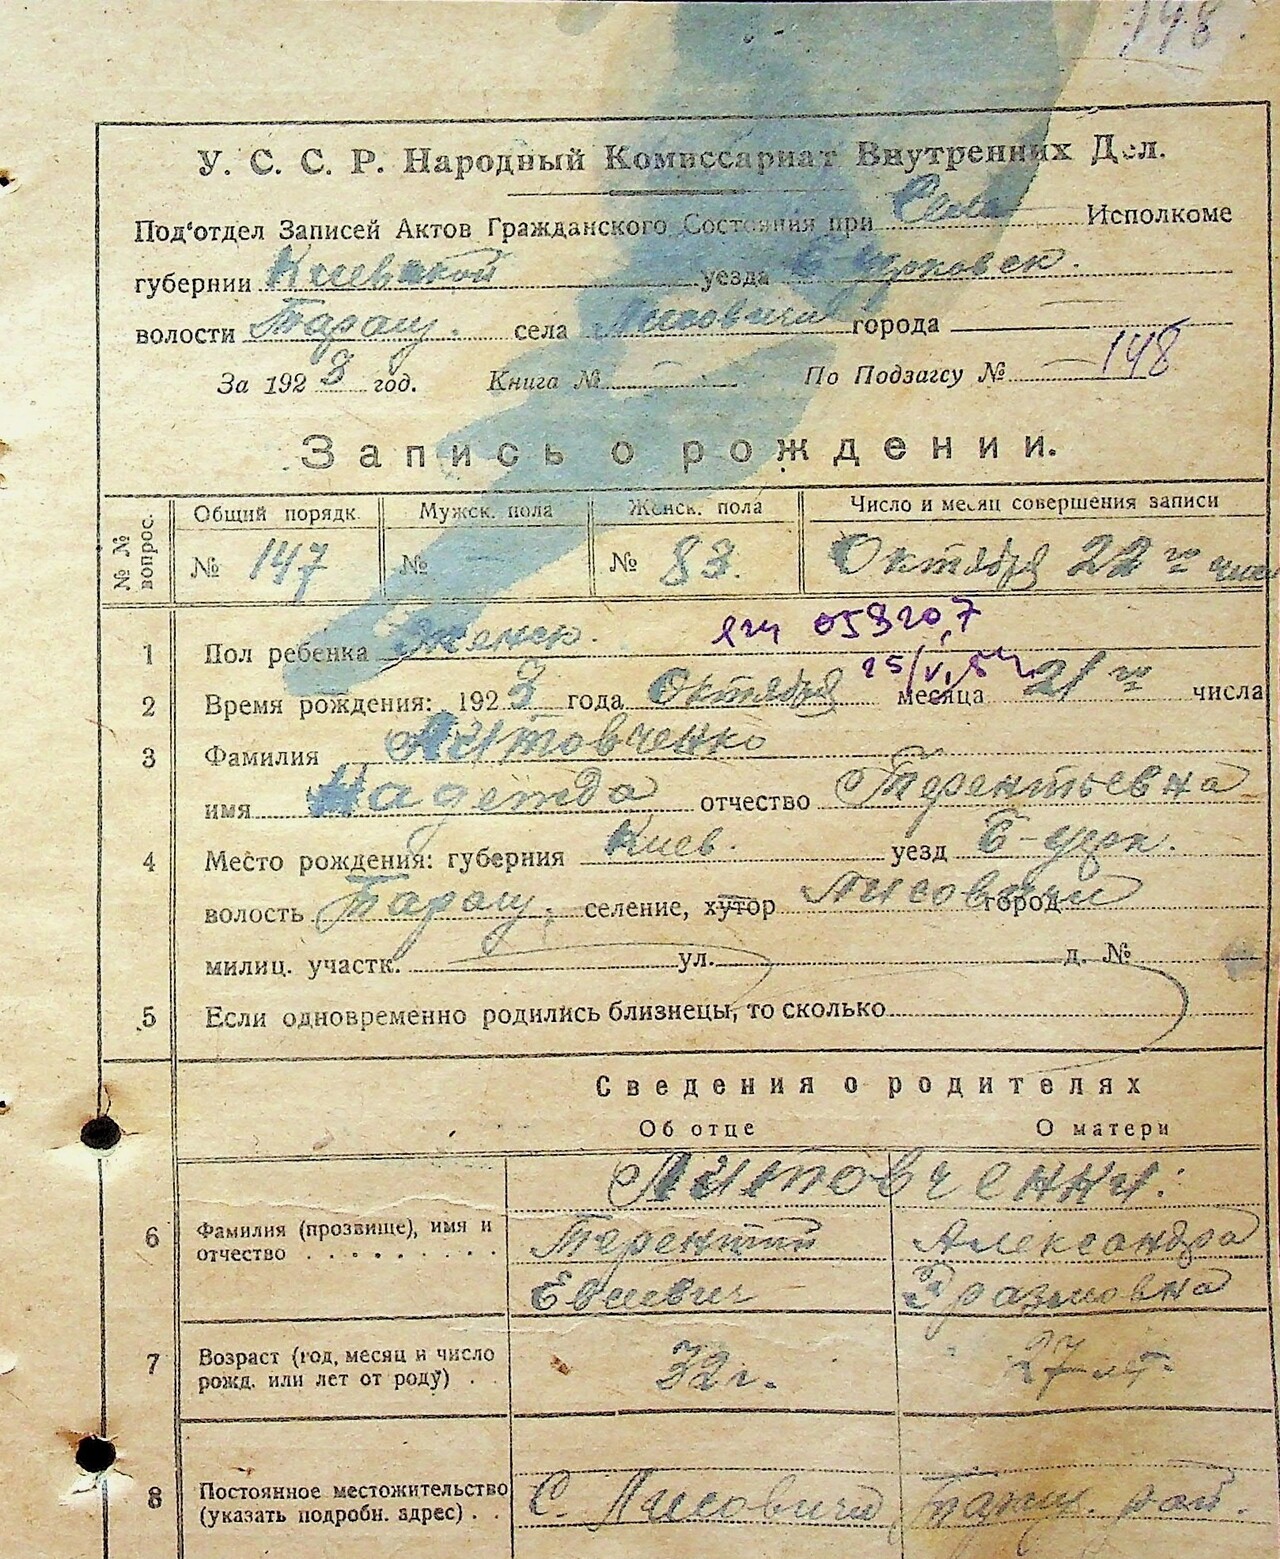 148.
У. С. С. Р. Народный Комиссариат Внутренних Дел.
Под'отдел Записей Актов Гражданского Состояния при Исполкоме
губернии Киевской уезда Б-Церковск.
волости Таращ. села Лисовичи города
За 1923 год. Книга № По Подзагсу № 148
Запись о рождении.
№ № вопрос. Общий порядк. Мужск. пола Женск. пола Число и месяц совершения записи
№ 147 № № 83. Октября 22го числ
1 Пол ребенка Женск. 059207
25/V.
2 Время рождения: 1923 года Октября месяца 21го числа
3 Фамилия Литовченко
имя Надежда отчество Терентьевна
4 Место рождения: губерния Киев. уезд Б-Церк.
волость Таращ. селение, хутор Лисовичи город
милиц. участк. ул. д. №
5 Если одновременно родились близнецы, то сколько
Сведения о родителях
Об отце О матери
Литовченки:
6 Фамилия (прозвище), имя и отчество Терентий Александра
Евсиевич Эразмовна
7 Возраст (год, месяц и число рожд. или лет от роду) 32 г. 27 л.
8 Постоянное местожительство (указать подробн. адрес) С. Лисовичи Таращ. рай.